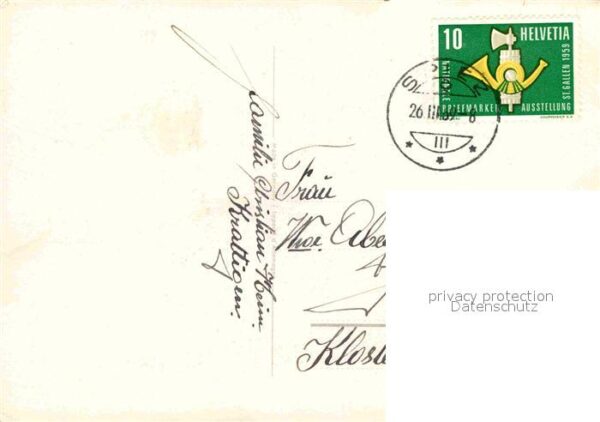 10 HELVETIA
NATIONALE
BRIEFMARKEN AUSSTELLUNG
ST. GALLEN 1959
26 III 59
III
Familie Christian Heim
Krattigen.
Frau
Wwe.
Kloste
privacy protection
Datenschutz